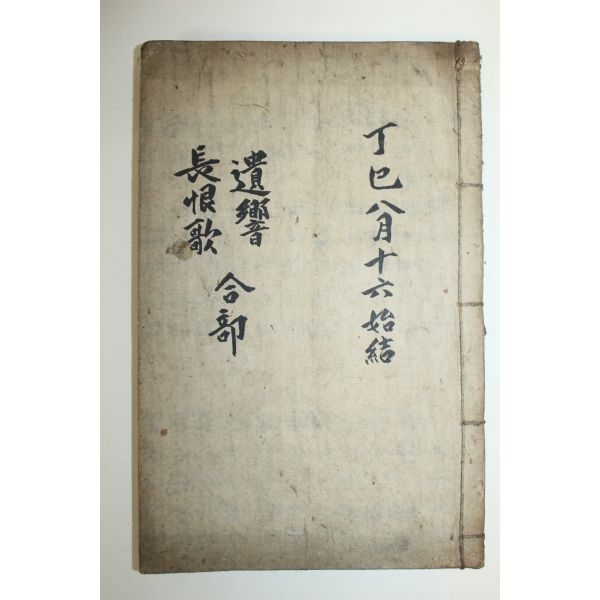 丁巳八月十六始結
遺響
長恨歌
合部